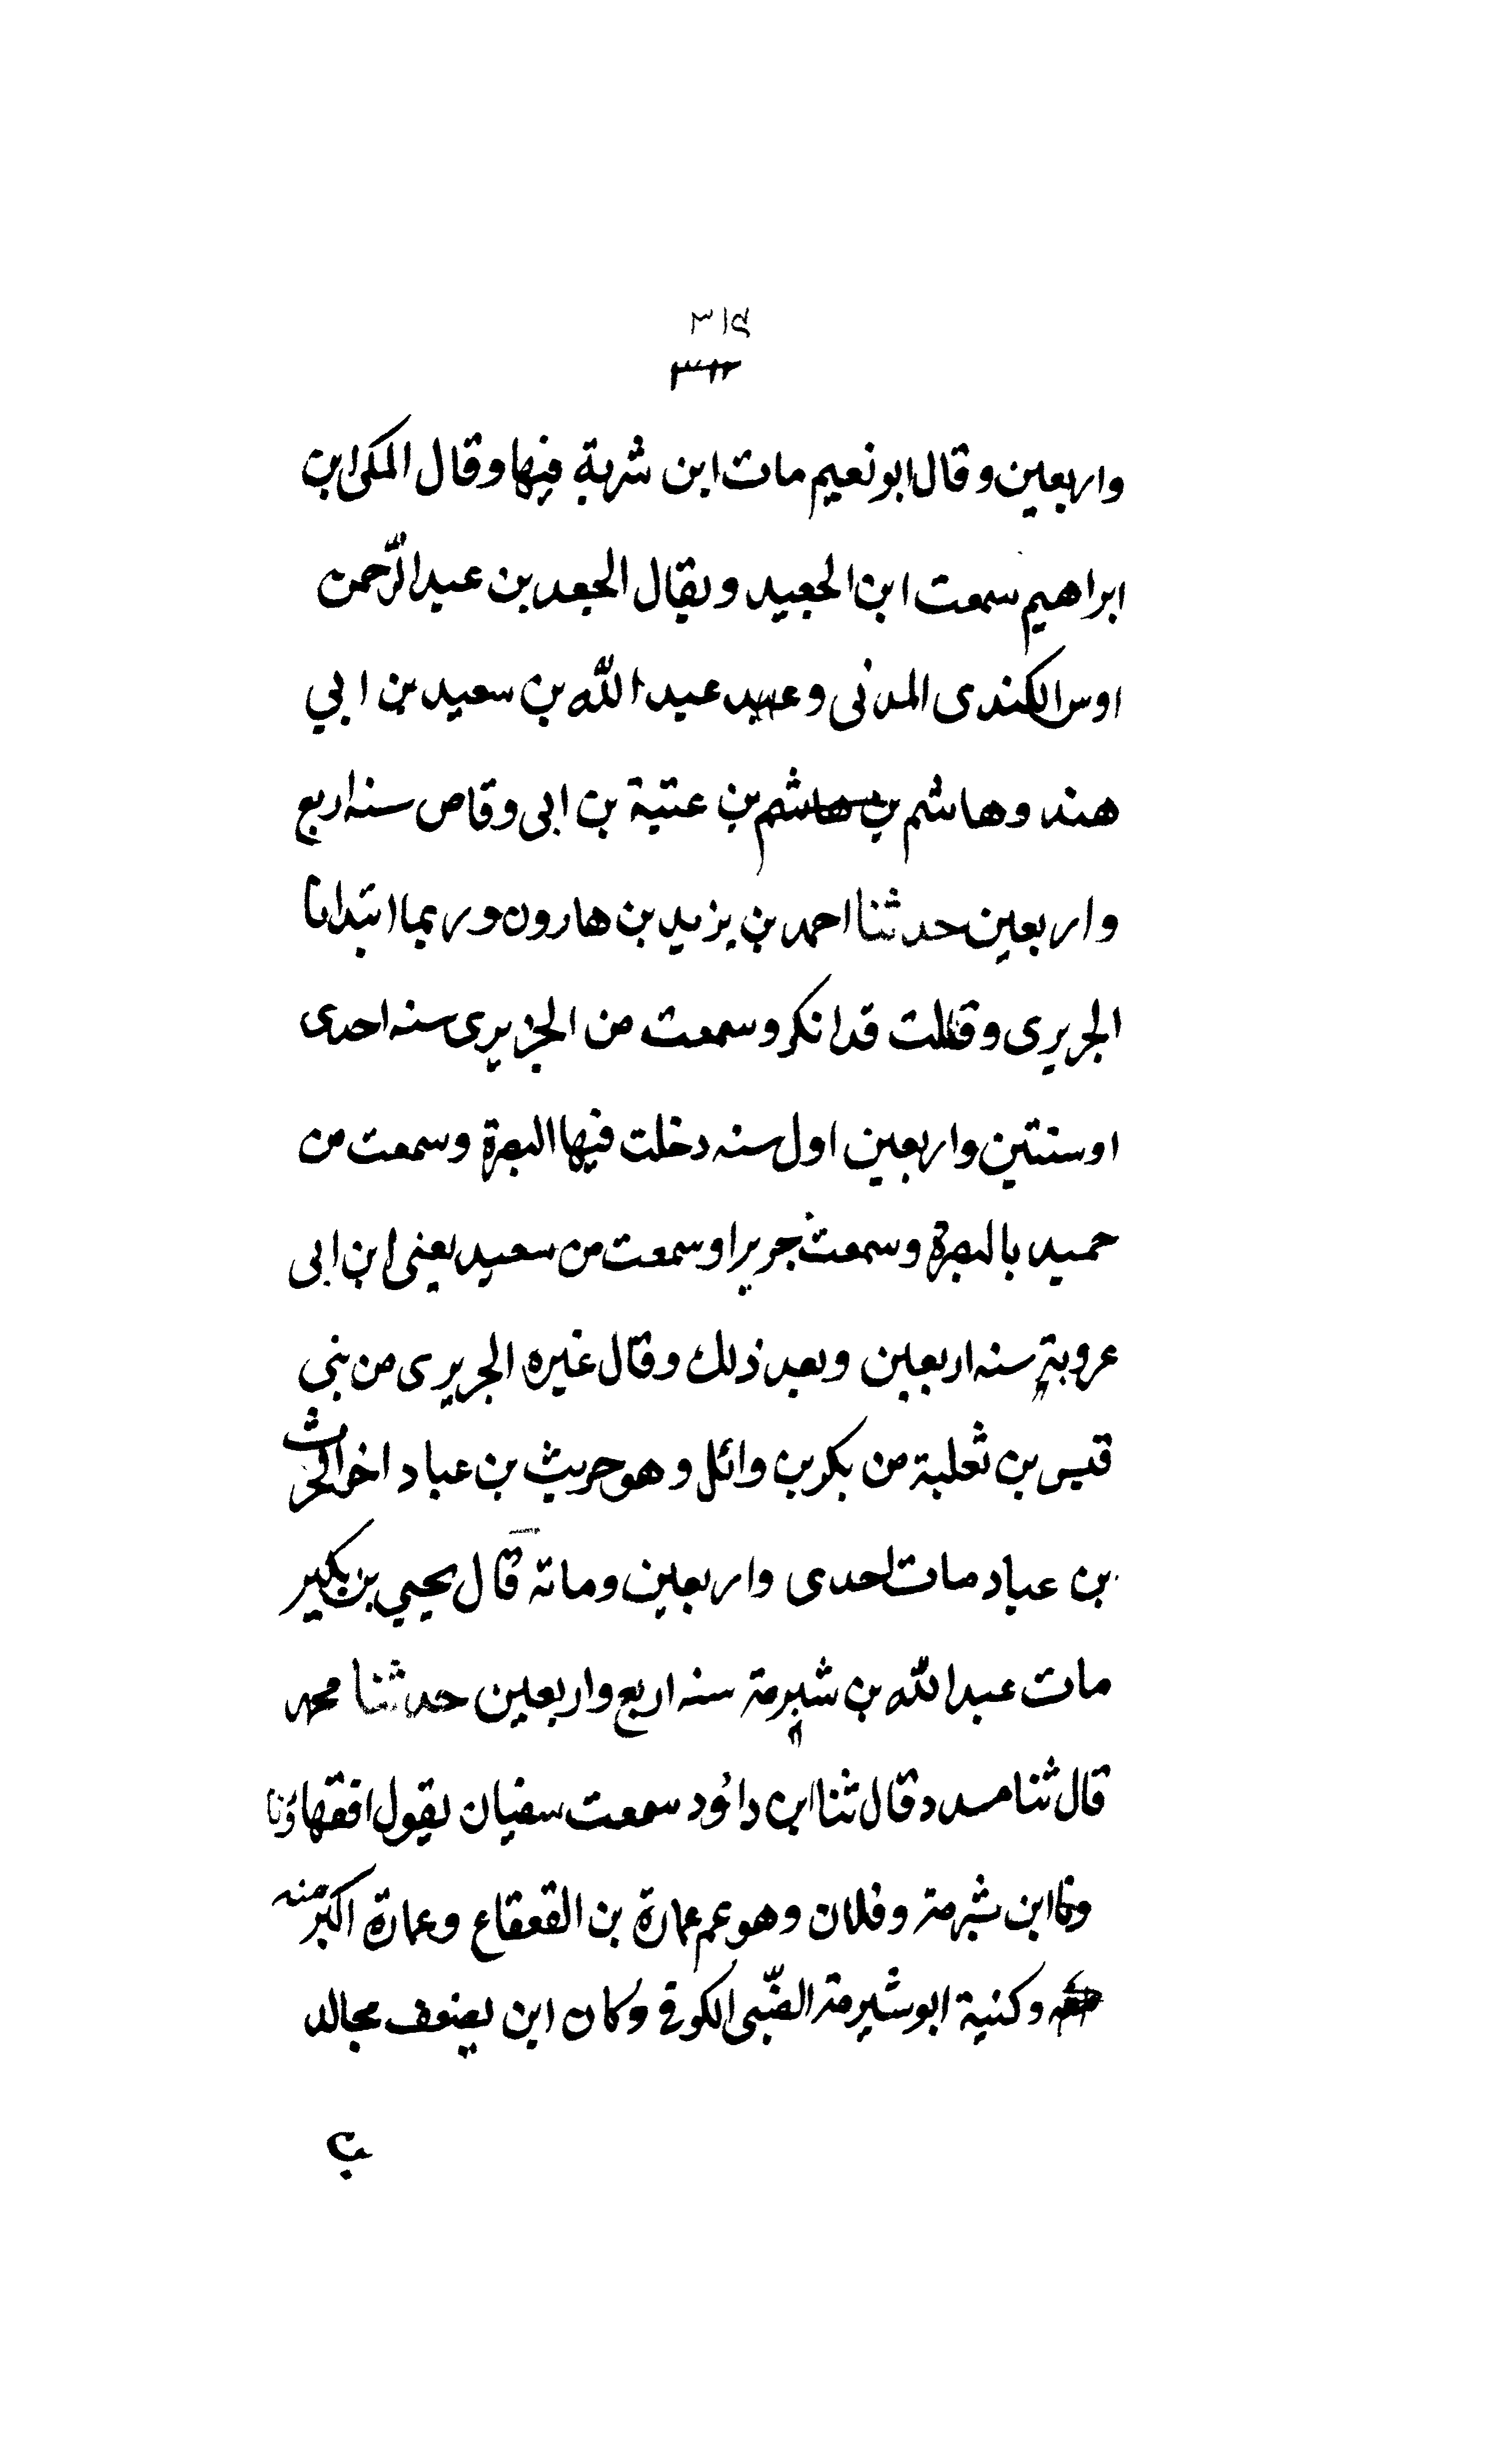 ٣١٩
٣١٢
واربعين وقال ابو نعيم مات ابن شربة فيها وقال المكى ابن
ابراهيم سمعت ابن الجعيد ويقال الجعد بن عبد الرّحمن
اوس الكندى المدنى وعبد عبد الله بن سعيد بن ابي
هند وهاشم بن هاشم بن عتبة بن ابى وقاص سنه اربع
واربعين حدثنا احمد بن يزيد بن هارون وربما ابتدانا
الجريرى وقلت قد انكر وسمعت من الجزيرى سنه احدى
او سنتين واربعين اول سنه دخلت فيها البصرة وسمعت من
حميد بالبصرة وسمعت جريرا وسمعت من سعيد يعنى ابن ابى
عروبة سنه اربعين وبعد ذلك وقال غيره الجريرى من بني
قيس بن ثعلبة من بكر بن وائل وهو حريث بن عباد اخو الحرث
بن عباد مات احدى واربعين ومائة قال يحيي بن بكير
مات عبد الله بن شبرمة سنه اربع واربعين حدثنا محمد
قال ثنا مسدد قال ثنا ابن داؤد سمعت سفيان يقول افقهاؤنا
ونا ابن شبرمة وفلان وهو عم عمارة بن القعقاع وعمارة اكبر منه
وكنية ابو شبرمة الضّبى الكوفى وكان ابن يضعف مجالد
ب